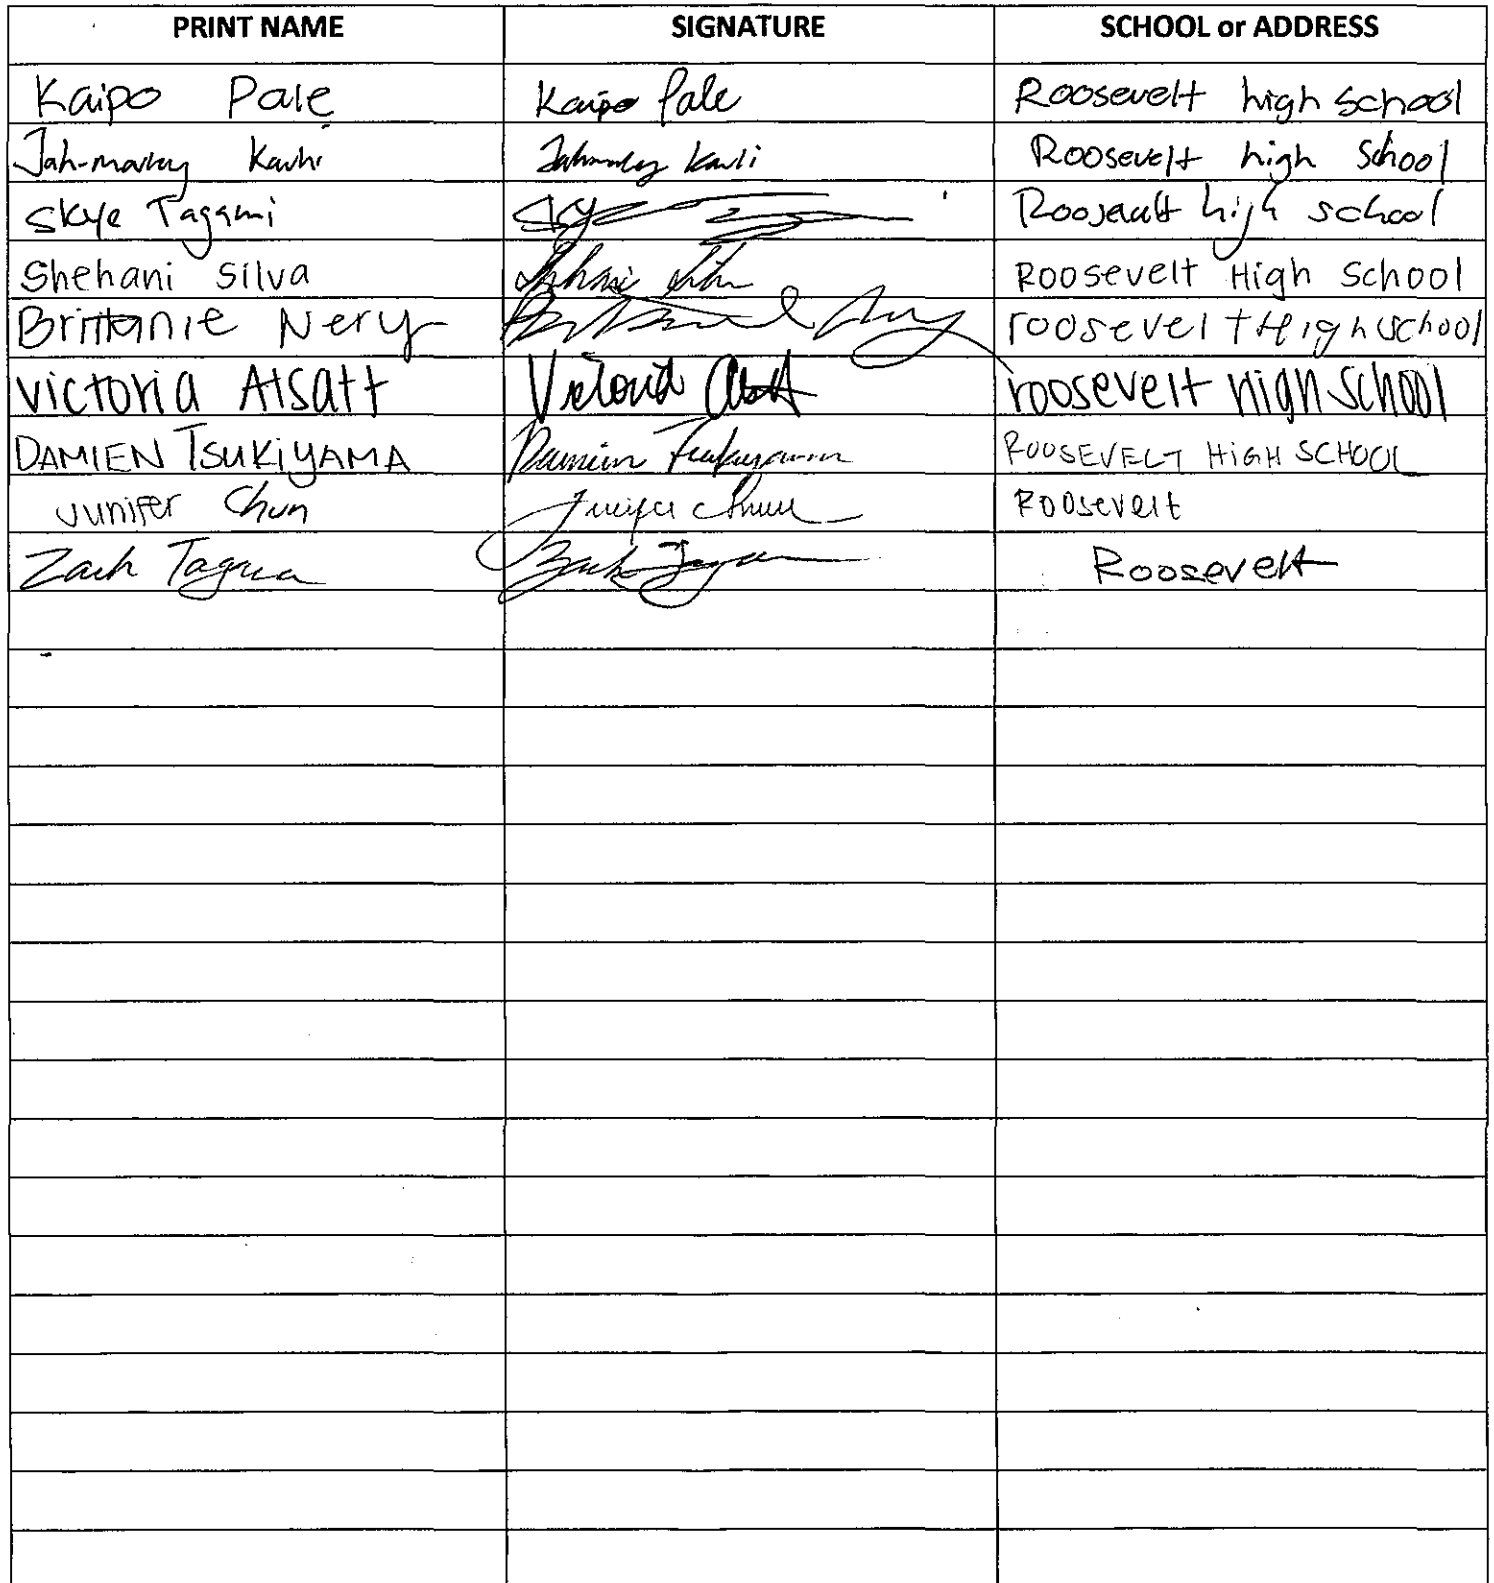 PRINT NAME SIGNATURE SCHOOL or ADDRESS
Kaipo Pale Kaipo Pale Roosevelt high school
Roosevelt high school
Skye Tagami Skye Roosevelt high school
Shehani Silva Shehani Silva Roosevelt High School
Brittanie Nery roosevelt High school
Victoria Alsatt Victoria roosevelt high school
DAMIEN TSUKIYAMA Damien Tsukiyama ROOSEVELT HIGH SCHOOL
Junifer Chun Junifer Chun Roosevelt
Zach Zach Roosevelt